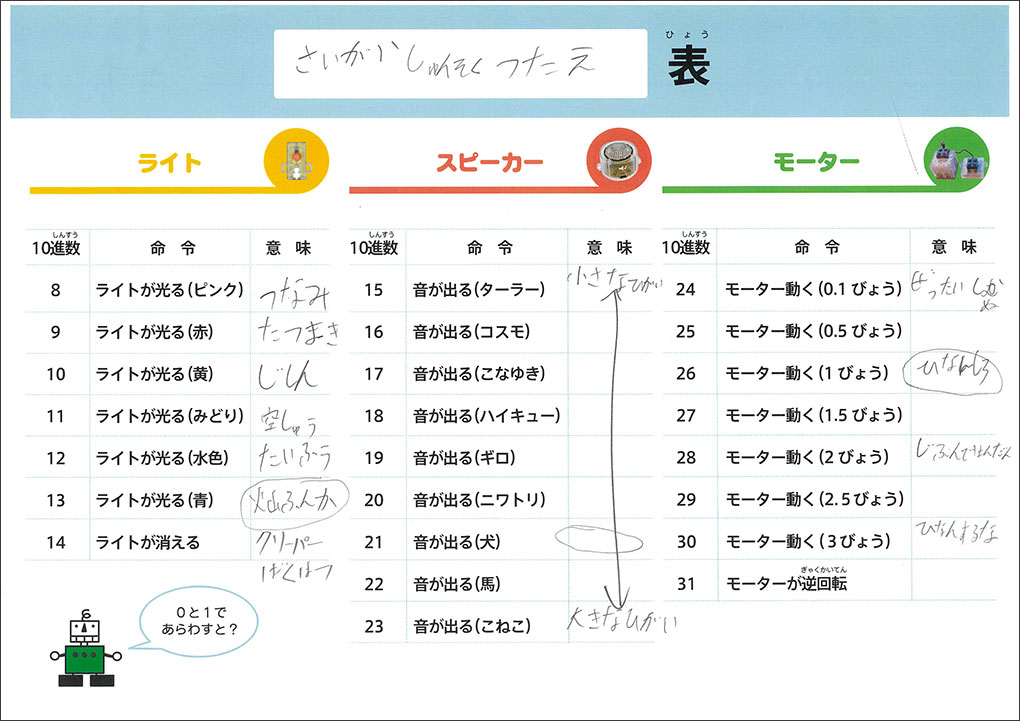 さいがいしゅんそくつたえ
ひょう
表
ライト
スピーカー
モーター
しんすう
10進数 命 令 意 味
8 ライトが光る(ピンク) つなみ
9 ライトが光る(赤) たつまき
10 ライトが光る(黄) じしん
11 ライトが光る(みどり) 空しゅう
12 ライトが光る(水色) たいふう
13 ライトが光る(青) 火山ふんか
14 ライトが消える クリーパー
ばくはつ
しんすう
10進数 命 令 意 味
15 音が出る(ターラー) 小さなひがい
16 音が出る(コスモ)
17 音が出る(こなゆき)
18 音が出る(ハイキュー)
19 音が出る(ギロ)
20 音が出る(ニワトリ)
21 音が出る(犬)
22 音が出る(馬)
23 音が出る(こねこ) 大きなひがい
しんすう
10進数 命 令 意 味
24 モーター動く(0.1びょう) ぜったい
25 モーター動く(0.5びょう)
26 モーター動く(1びょう) ひなんしろ
27 モーター動く(1.5びょう)
28 モーター動く(2びょう)
29 モーター動く(2.5びょう)
30 モーター動く(3びょう) ひなんするな
ぎゃくかいてん
31 モーターが逆回転
0と1で
あらわすと?